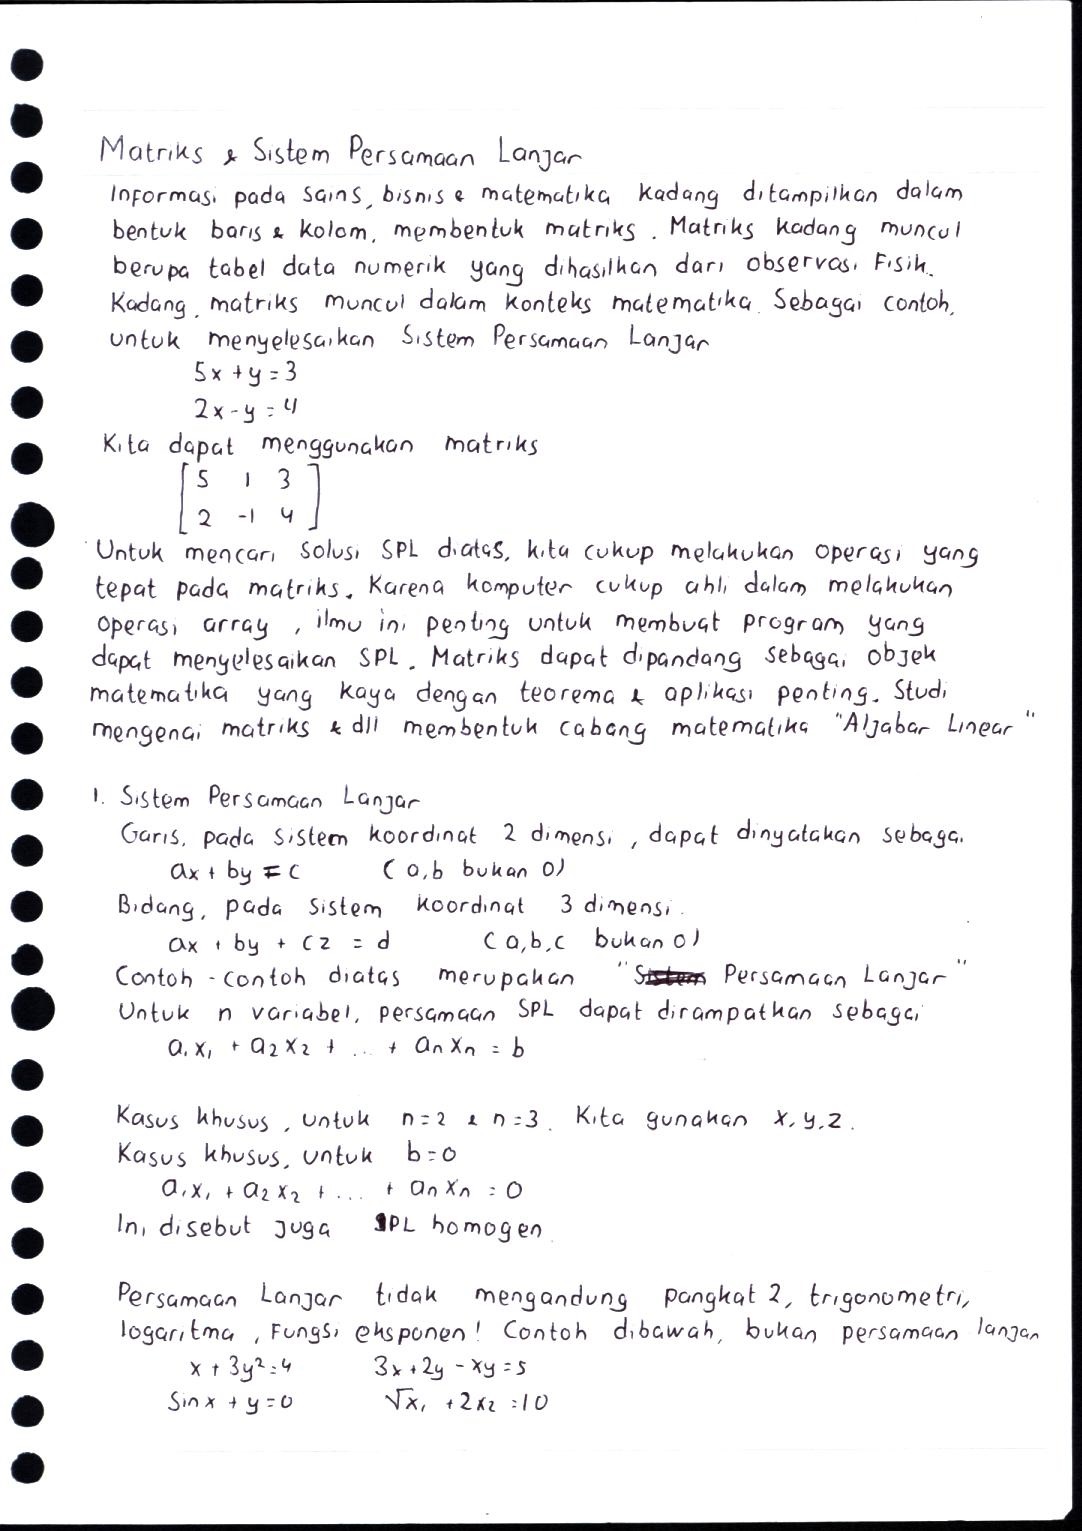 Matriks & Sistem Persamaan Lanjar
Informasi pada sains, bisnis & matematika kadang ditampilkan dalam
bentuk baris & kolom, membentuk matriks. Matriks kadang muncul
berupa tabel data numerik yang dihasilkan dari observasi fisik.
Kadang, matriks muncul dalam konteks matematika. Sebagai contoh,
untuk menyelesaikan Sistem Persamaan Lanjar
5x + y = 3
2x - y = 4
Kita dapat menggunakan matriks
[ 5 1 3 ]
[ 2 -1 4 ]
Untuk mencari solusi SPL diatas, kita cukup melakukan operasi yang
tepat pada matriks. Karena komputer cukup ahli dalam melakukan
operasi array, ilmu ini penting untuk membuat program yang
dapat menyelesaikan SPL. Matriks dapat dipandang sebagai objek
matematika yang kaya dengan teorema & aplikasi penting. Studi
mengenai matriks & dll membentuk cabang matematika "Aljabar Linear"
1. Sistem Persamaan Lanjar
Garis, pada sistem koordinat 2 dimensi, dapat dinyatakan sebagai
ax + by = c (a,b bukan 0)
Bidang, pada sistem koordinat 3 dimensi.
ax + by + cz = d (a,b,c bukan 0)
Contoh-contoh diatas merupakan "Sistem Persamaan Lanjar"
Untuk n variabel, persamaan SPL dapat dirampatkan sebagai
a₁x₁ + a₂x₂ + ... + aₙxₙ = b
Kasus khusus, untuk n=2 & n=3. Kita gunakan x,y,z.
Kasus khusus, untuk b=0
a₁x₁ + a₂x₂ + ... + aₙxₙ = 0
Ini disebut juga SPL homogen
Persamaan Lanjar tidak mengandung pangkat 2, trigonometri,
logaritma, fungsi eksponen! Contoh dibawah, bukan persamaan lanjar
x + 3y² = 4 3x + 2y - xy = 5
sin x + y = 0 √x₁ + 2x₂ = 10